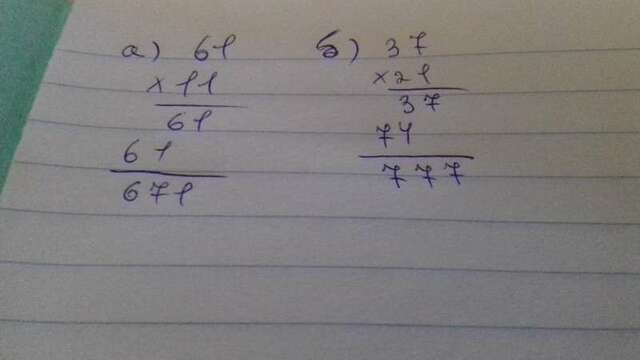 а) 61
×11
61
61
671
б) 37
×21
37
74
777